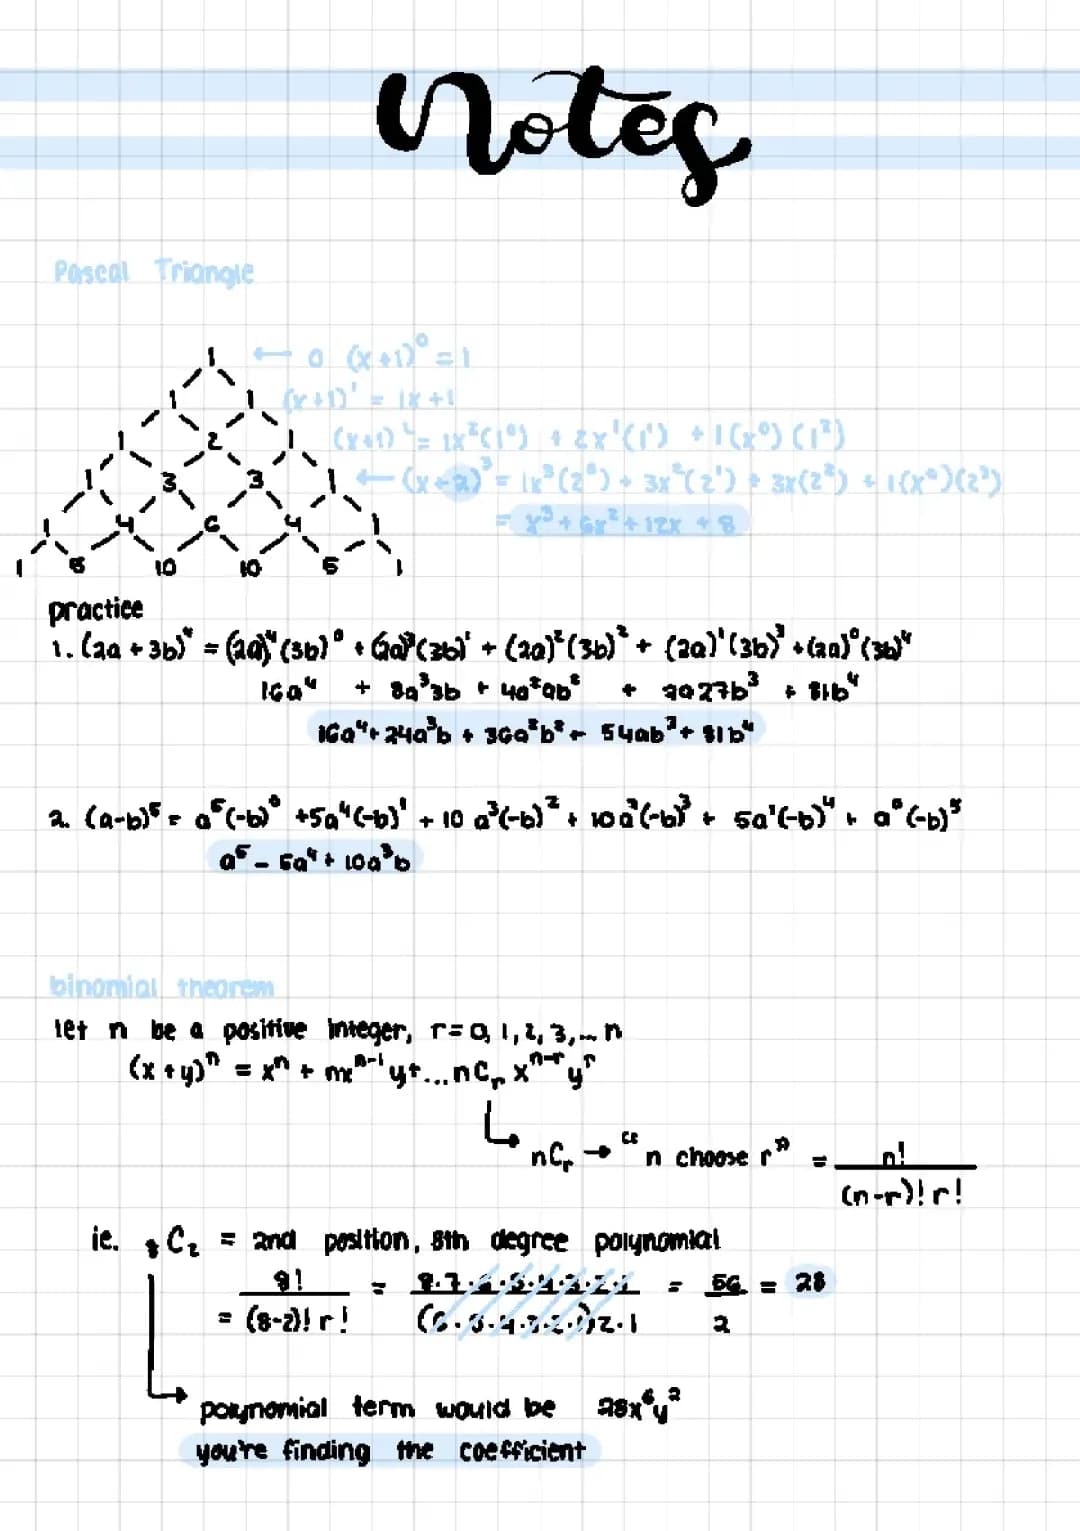 Notes
Pascal Triangle
1 ← 0 (x+1)⁰ = 1
1 1 (x+1)¹ = 1x+1
1 2 1 (x+1)² = 1x²(1⁰) + 2x¹(1¹) + 1(x⁰)(1²)
1 3 3 1 ← (x+2)³ = 1x³(2⁰) + 3x²(2¹) + 3x(2²) + 1(x⁰)(2³)
= x³ + 6x² + 12x + 8
1 4 6 4 1
1 5 10 10 5 1
practice
1. (2a + 3b)⁴ = (2a)⁴(3b)⁰ + (2a)³(3b)¹ + (2a)²(3b)² + (2a)¹(3b)³ + (2a)⁰(3b)⁴
16a⁴ + 8a³3b + 4a²9b² + 2a27b³ + 81b⁴
16a⁴ + 24a³b + 36a²b² + 54ab³ + 81b⁴
2. (a-b)⁵ = a⁵(-b)⁰ + 5a⁴(-b)¹ + 10a³(-b)² + 10a²(-b)³ + 5a¹(-b)⁴ + a⁰(-b)⁵
a⁵ - 5a⁴ + 10a³b
binomial theorem
let n be a positive integer, r = 0, 1, 2, 3,... n
(x+y)ⁿ = xⁿ + nxⁿ⁻¹y+...nCᵣ xⁿ⁻ʳyʳ
nCᵣ → "n choose r" = n! / (n-r)! r!
ie. ₈C₂ = 2nd position, 8th degree polynomial
= 8! / (8-2)! r! = 8·7·6·5·4·3·2·1 / (6·5·4·3·2·1)2·1 = 56 / 2 = 28
polynomial term would be 28x⁶y²
you're finding the coefficient